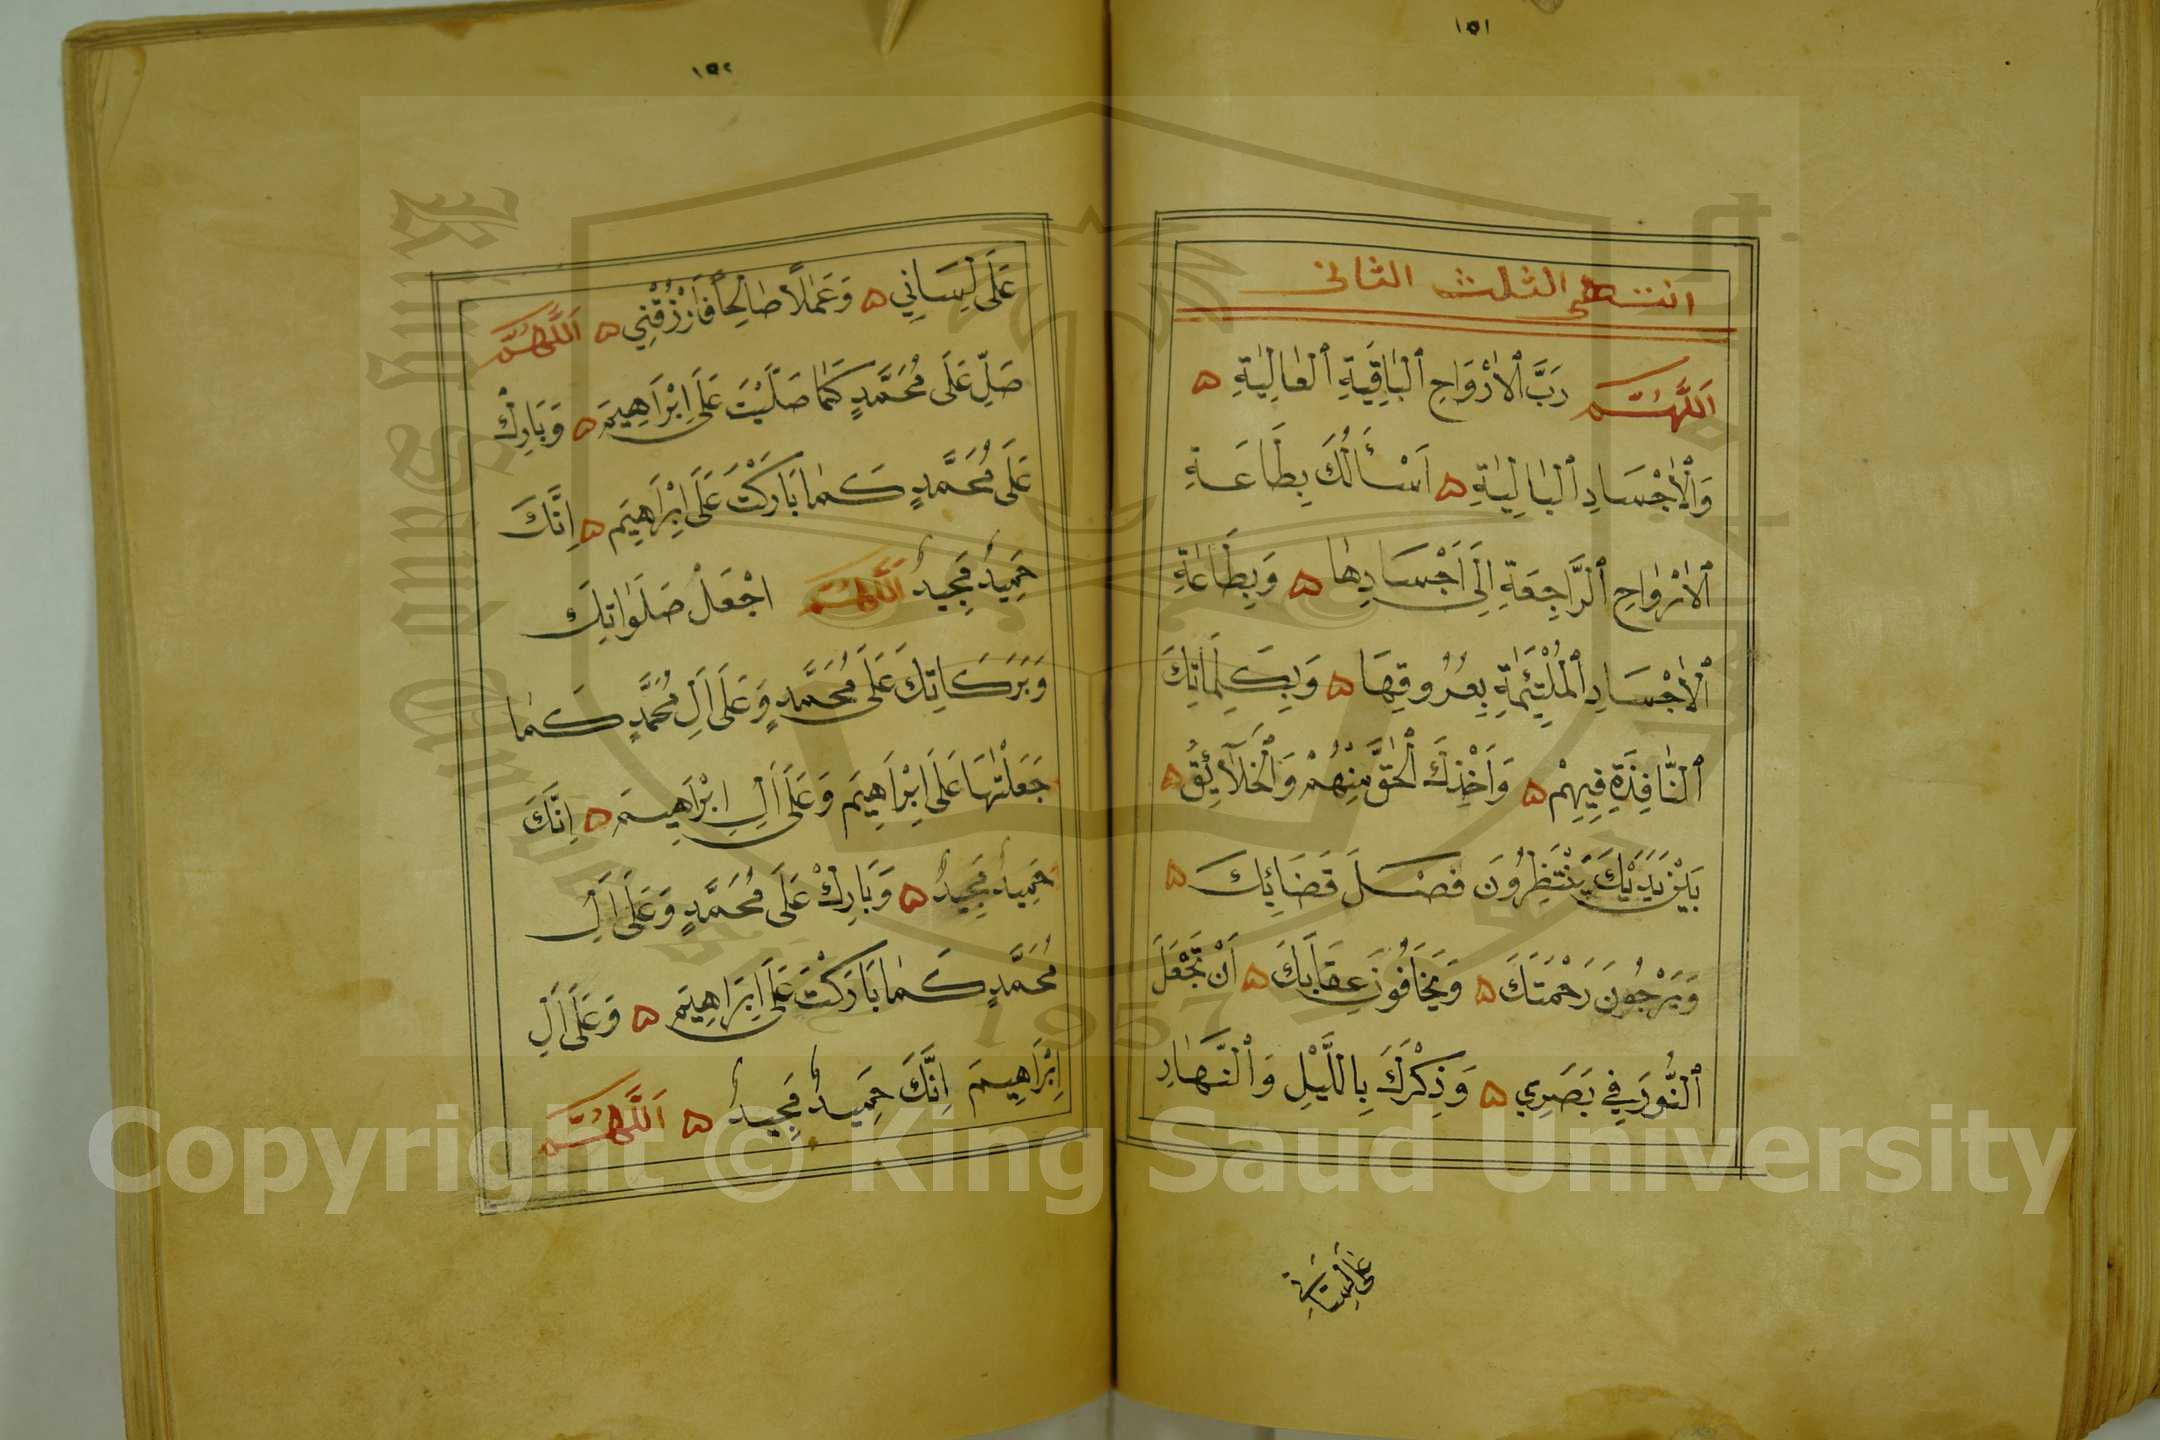 ١٥١
انتهى الثلث الثانى
اَللَّهُمَّ رَبَّ ٱلْأَرْوَاحِ ٱلْبَاقِيَةِ ٱلْعَالِيَةِ ۵
وَٱلْأَجْسَادِ ٱلْبَالِيَةِ ۵ اَسْأَلُكَ بِطَاعَةِ
ٱلْأَرْوَاحِ ٱلرَّاجِعَةِ اِلَى اَجْسَادِهَا ۵ وَبِطَاعَةِ
ٱلْأَجْسَادِ ٱلْمُلْتَئِمَةِ بِعُرُوقِهَا ۵ وَبِكَلِمَاتِكَ
ٱلنَّافِذَةِ فِيهِمْ ۵ وَاَخْذِكَ ٱلْحَقَّ مِنْهُمْ وَٱلْخَلَآئِقُ ۵
بَيْنَ يَدَيْكَ يَنْتَظِرُونَ فَصْلَ قَضَائِكَ ۵
وَيَرْجُونَ رَحْمَتَكَ ۵ وَيَخَافُونَ عِقَابَكَ ۵ اَنْ تَجْعَلَ
ٱلنُّورَ فِي بَصَرِي ۵ وَذِكْرَكَ بِاللَّيْلِ وَٱلنَّهَارِ
عَلَى لِسَانِي
١٥٢
عَلَى لِسَانِي ۵ وَعَمَلاً صَالِحًا فَارْزُقْنِي ۵ اَللَّهُمَّ
صَلِّ عَلَى مُحَمَّدٍ كَمَا صَلَّيْتَ عَلَى اِبْرَاهِيمَ ۵ وَبَارِكْ
عَلَى مُحَمَّدٍ كَمَا بَارَكْتَ عَلَى اِبْرَاهِيمَ ۵ اِنَّكَ
حَمِيدٌ مَجِيدٌ اَللَّهُمَّ اجْعَلْ صَلَوَاتِكَ
وَبَرَكَاتِكَ عَلَى مُحَمَّدٍ وَعَلَى اَلِ مُحَمَّدٍ كَمَا
جَعَلْتَهَا عَلَى اِبْرَاهِيمَ وَعَلَى اَلِ اِبْرَاهِيمَ ۵ اِنَّكَ
حَمِيدٌ مَجِيدٌ ۵ وَبَارِكْ عَلَى مُحَمَّدٍ وَعَلَى اَلِ
مُحَمَّدٍ كَمَا بَارَكْتَ عَلَى اِبْرَاهِيمَ ۵ وَعَلَى اَلِ
اِبْرَاهِيمَ اِنَّكَ حَمِيدٌ مَجِيدٌ ۵ اَللَّهُمَّ
1957
Copyright © King Saud University